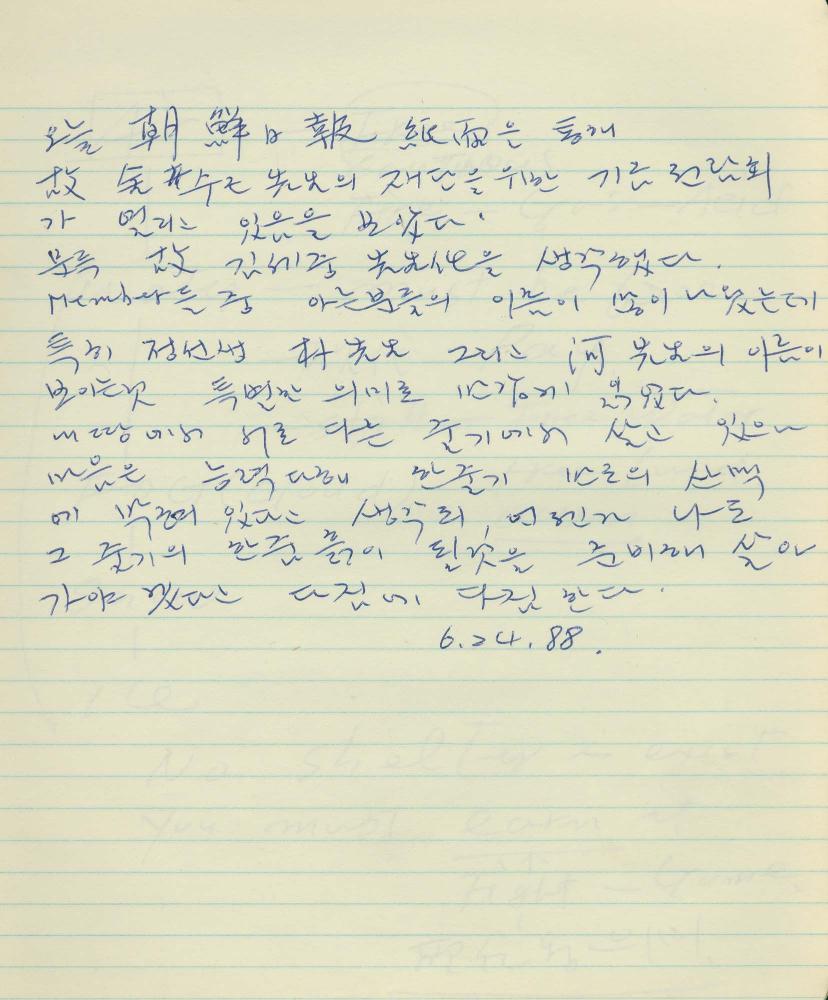 오늘 朝鮮日報 紙面은 통해
故 金수근 先生의 재단을 위한 기금 전람회
가 열리는 있음을 보았다.
문득 故 김세중 先生을 생각했다.
Member들 중 아는분들의 이름이 많이 나왔는데
특히 정선생 朴先生 그리고 河先生의 이름이
보이는것 특별한 의미로 나에게
내 땅에서 서로 다른 줄기에서 살고 있으나
마음은 능력 다해 한줄기 산맥
에 있다는 생각 언젠가 나도
그 줄기의 한줌 흙이 될것을 준비해 살아
가야 겠다는 다짐에 다짐 한다.
6.24.88.